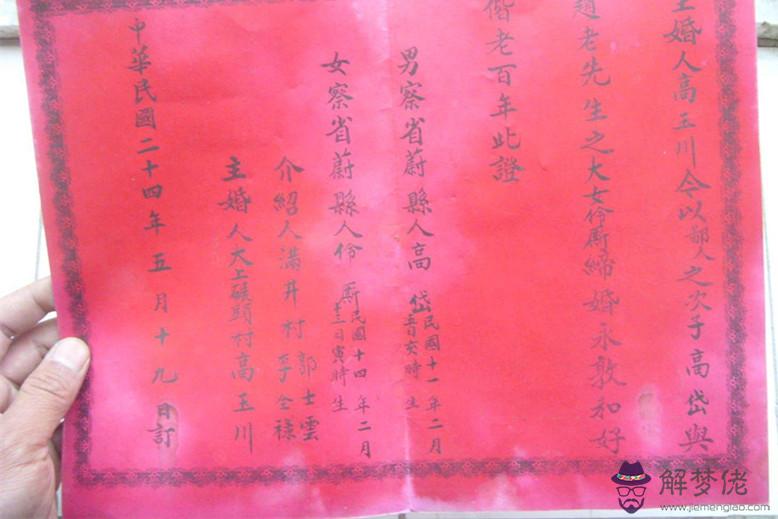 主婚人高玉川今以鄙人之次子高岱與
趙老先生之大女伶厮締婚永敦和好
偕老百年此證
男察省蔚縣人高岱民國十一年二月
五日亥時生
女察省蔚縣人伶厮民國十四年二月
十三日寅時生
介紹人滿井村郭士雲
李全祿
主婚人大上碾頭村高玉川
中華民國二十四年五月十九日訂
解梦佬
www.jiemenglao.com